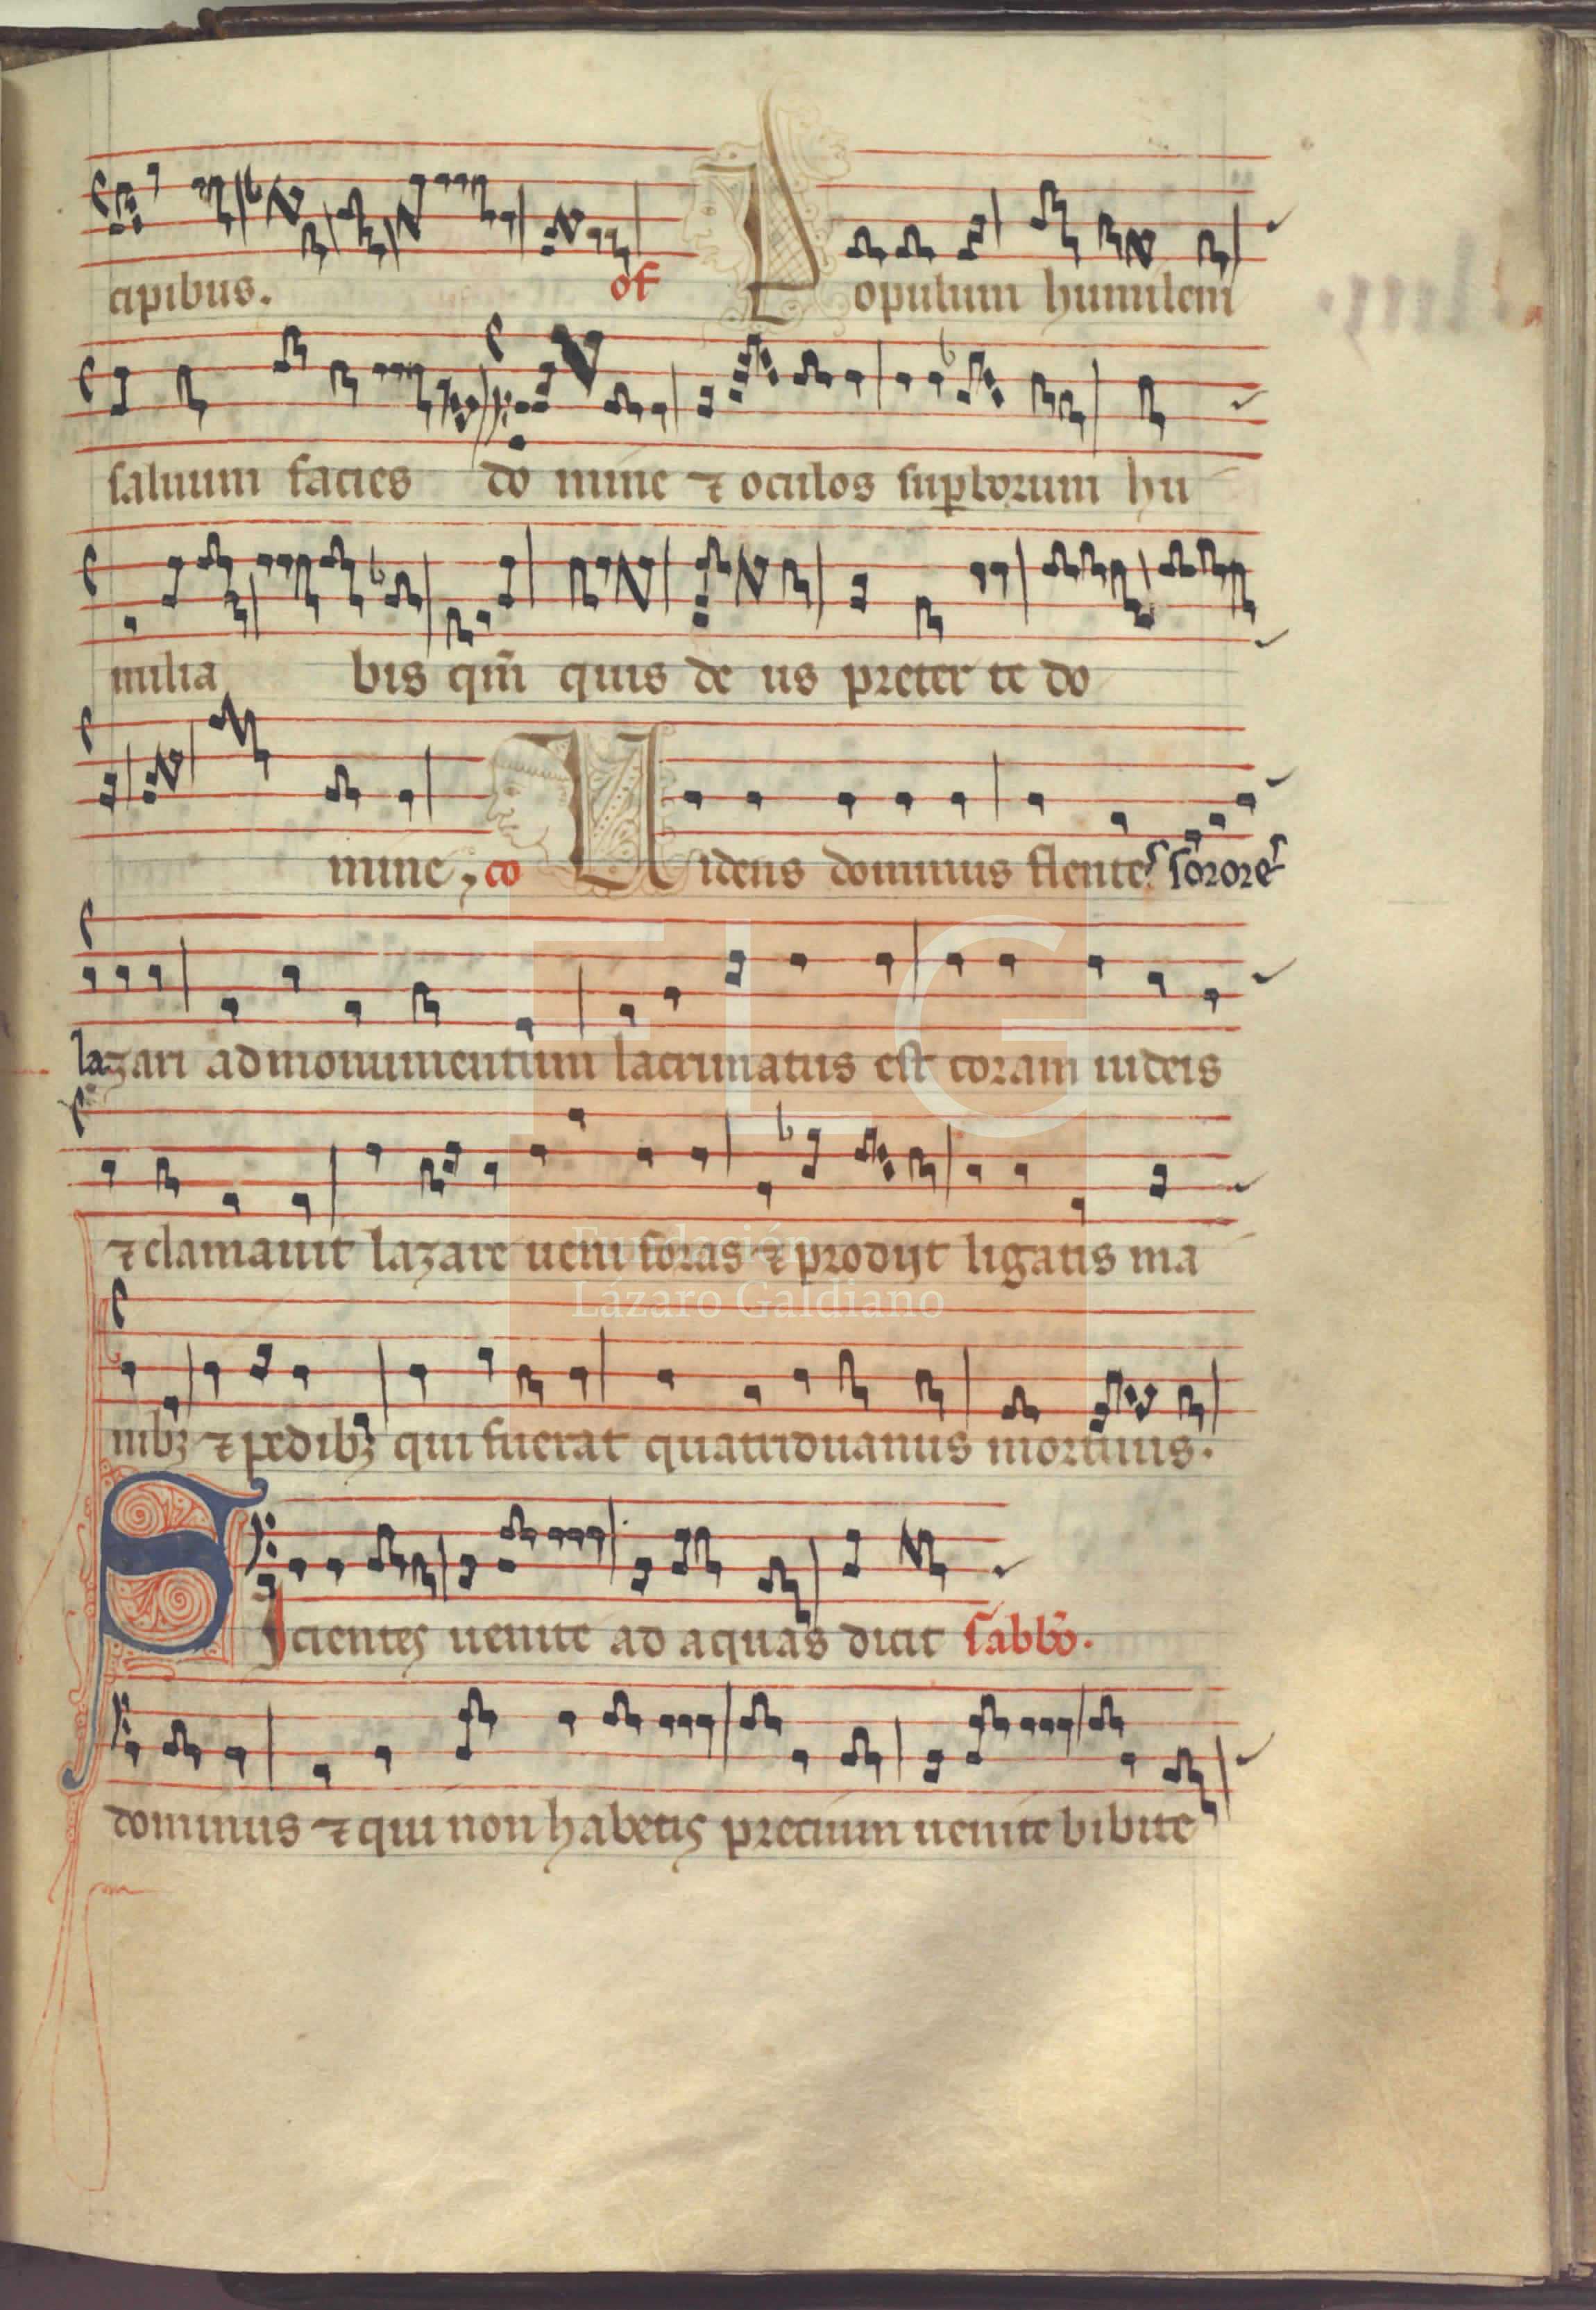 cipibus. of Populum humilem
saluum facies do mine ⁊ oculos suꝑborum hu
milia bis qm̄ quis de us preter te do
mine, co Uidens dominus flentes sorores
lazari ad monumentum lacrimatus est coram iudeis
⁊ clamauit lazare ueni foras ⁊ prodijt ligatis ma
nibꝫ ⁊ pedibꝫ qui fuerat quatriduanus mortuus.
Sicientes uenite ad aquas dicit sabbō.
dominus ⁊ qui non habetis precium uenite bibite
FLG
Fundación
Lázaro Galdiano